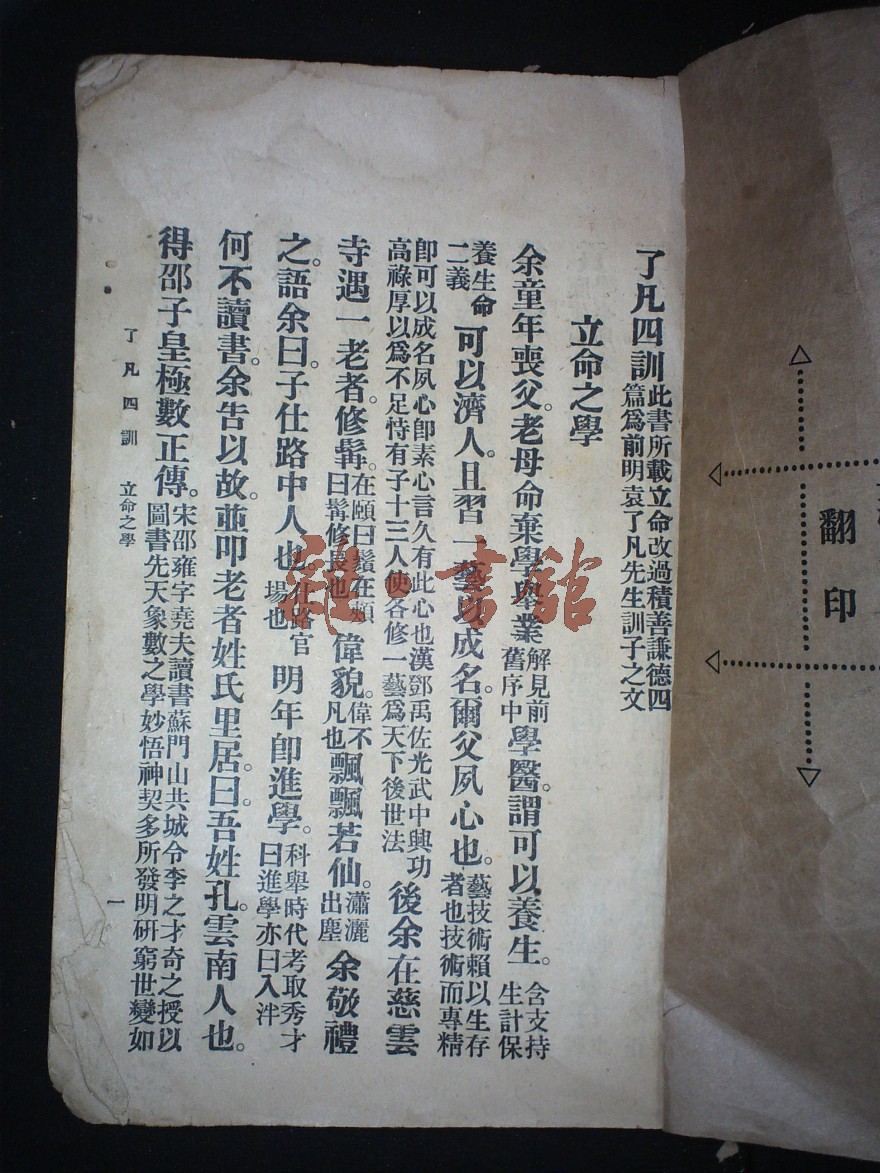 了凡四訓此書所載立命改過積善謙德四篇爲前明袁了凡先生訓子之文
立命之學
余童年喪父。老母命棄學舉業解見前舊序中學醫。謂可以養生。含支持生計保
養生命二義可以濟人。且習一藝以成名。爾父夙心也。藝技術賴以生存者也技術而專精
卽可以成名夙心卽素心言久有此心也漢鄧禹佐光武中興功高祿厚以爲不足恃有子十三人使各修一藝爲天下後世法後余在慈雲
寺遇一老者。修髯。在頤曰鬚在頰曰髯修長也偉貌。偉不凡也飄飄若仙。瀟灑出塵余敬禮
之。語余曰。子仕路中人也。仕路官場也明年卽進學。科舉時代考取秀才曰進學亦曰入泮
何不讀書。余告以故。並叩老者姓氏里居。曰。吾姓孔。雲南人也。
得邵子皇極數正傳。宋邵雍字堯夫讀書蘇門山共城令李之才奇之授以圖書先天象數之學妙悟神契多所發明研窮世變如
了凡四訓 立命之學 一
翻印
雜·書館